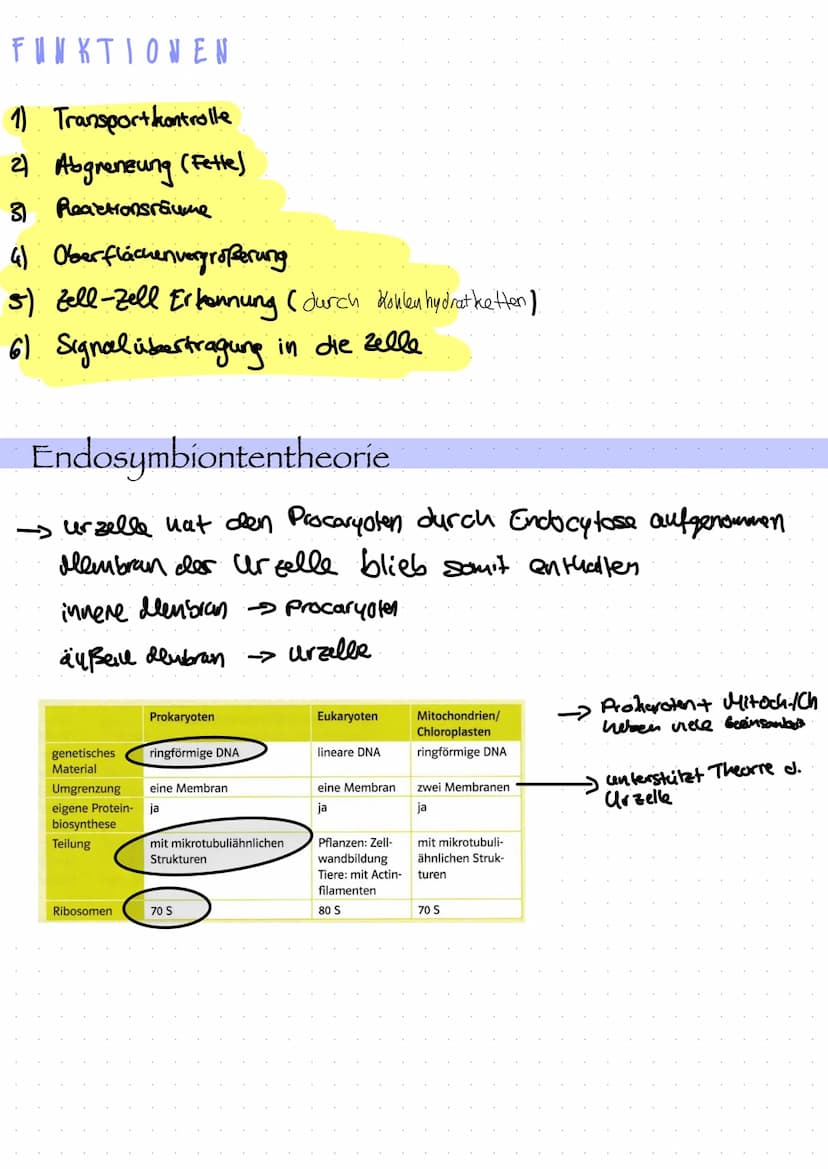 FUNKTIONEN
1) Transportkontrolle
2) Abgrenzung (Fette)
3) Reaktionsräume
4) Oberflächenvergrößerung
5) Zell-Zell Erkennung (durch Kohlenhydratketten)
6) Signalübertragung in die Zelle
Endosymbiontentheorie
→ Urzelle hat den Procaryoten durch Endocytose aufgenommen
Membran der Urzelle blieb somit enthalten
innere Membran → Procaryoten
äußere Membran → Urzelle
Prokaryoten Eukaryoten Mitochondrien/
Chloroplasten
genetisches ringförmige DNA lineare DNA ringförmige DNA
Material
Umgrenzung eine Membran eine Membran zwei Membranen
eigene Protein- ja ja ja
biosynthese
Teilung mit mikrotubuliähnlichen Pflanzen: Zell- mit mikrotubuli-
Strukturen wandbildung ähnlichen Struk-
Tiere: mit Actin- turen
filamenten
Ribosomen 70 S 80 S 70 S
→ Prokaroten + Mitoch./Ch
haben viele
→ unterstützt Theorie d.
Urzelle